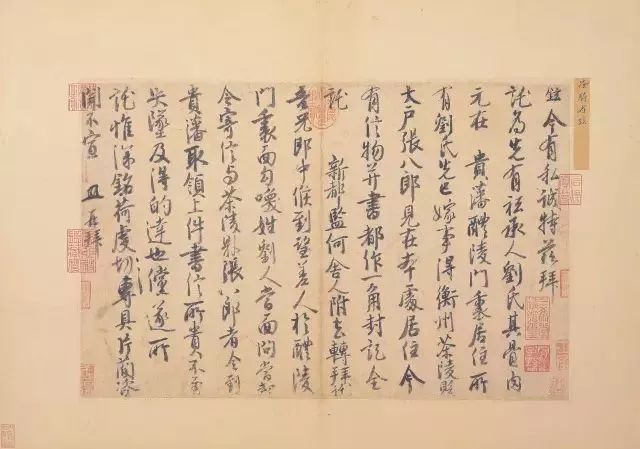 鉉今有私誠特茲拜
託為先有祗承人劉氏其骨肉
元在 貴藩醴陵門裏居住所
有劉氏先已嫁事得衡州茶陵縣
大户張八郎見在本處居住今
有信物并書都作一角封記全
託 新都監何舍人附去轉拜託
吾兄郎中候到望差人於醴陵
門裏面勾喚姓劉人當面問當却
令寄信与茶陵縣張八郎者令到
貴藩取領上件書信所貴不至
失墜及得的達也儻遂所
託惟深銘荷虔切專具片簡諮
聞不宣 再拜